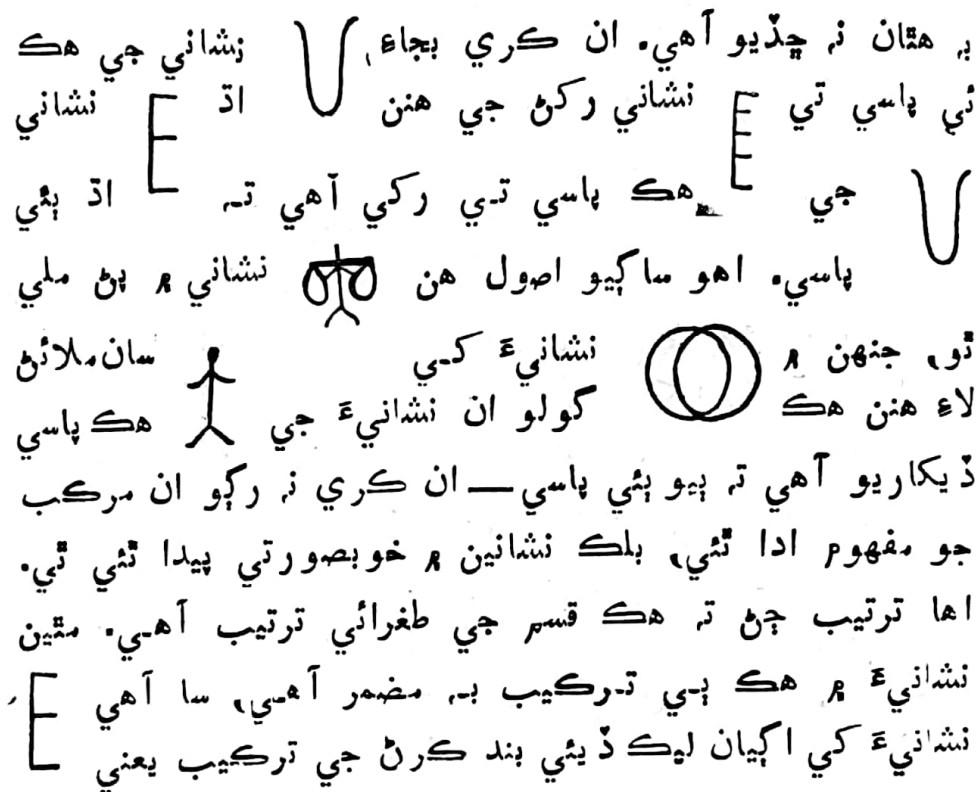 به هٿان نه ڇڏيو آهي. ان ڪري بجاءِ نشاني جي هڪ
ئي پاسي تي نشاني رکڻ جي هنن اڌ نشاني
جي هڪ پاسي تي رکي آهي ته اڌ ٻئي
پاسي. اهو ساڳيو اصول هن نشاني ۾ پڻ ملي
ٿو، جنهن ۾ نشانيءَ کي سان ملائڻ
لاءِ هنن هڪ گولو ان نشانيءَ جي هڪ پاسي
ڏيکاريو آهي ته ٻيو ٻئي پاسي — ان ڪري نه رڳو ان مرڪب
جو مفهوم ادا ٿئي، بلڪ نشانين ۾ خوبصورتي پيدا ٿئي ٿي.
اها ترتيب ڄڻ ته هڪ قسم جي طغرائي ترتيب آهي. مٿين
نشانيءَ ۾ هڪ ٻي ترڪيب به مضمر آهي، سا آهي
نشانيءَ کي اڳيان ليڪ ڏيئي بند ڪرڻ جي ترڪيب يعني